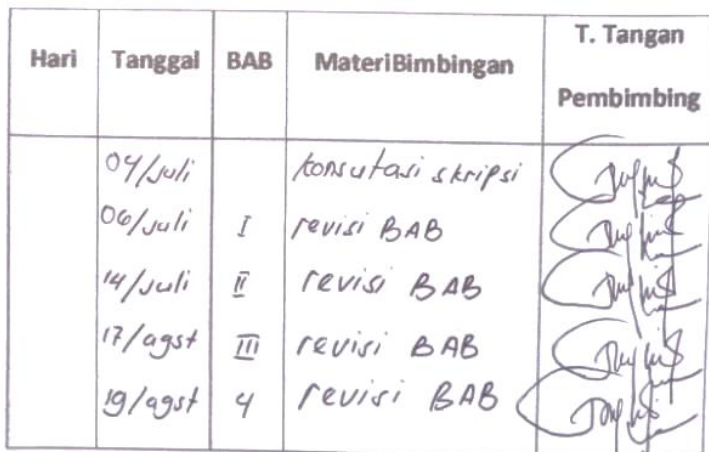 Hari Tanggal BAB MateriBimbingan T. Tangan Pembimbing
04/Juli konsutasi skripsi
06/Juli I revisi BAB
14/Juli II revisi BAB
17/agst III revisi BAB
19/agst 4 revisi BAB